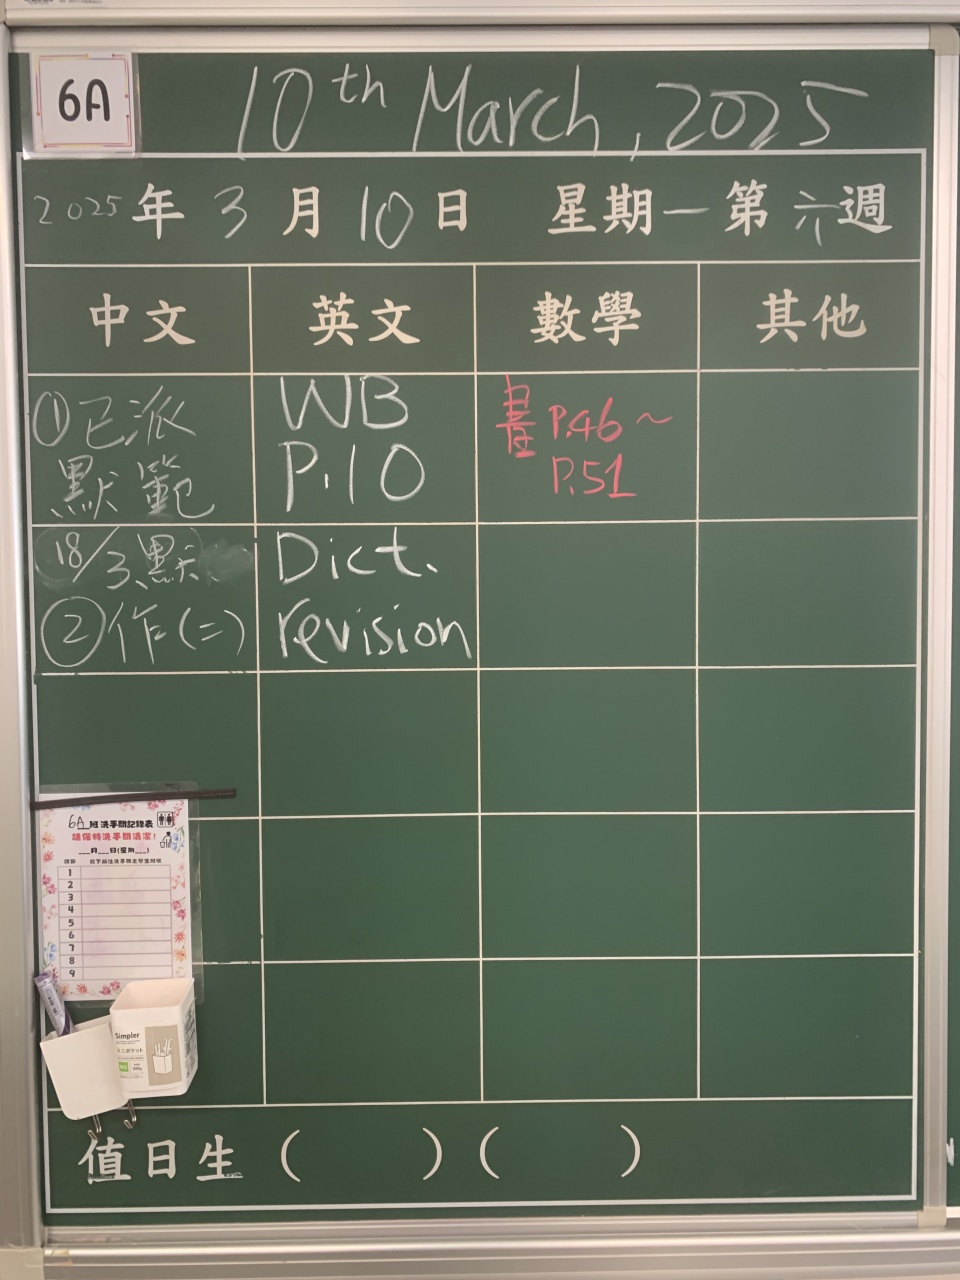 6A
10th March, 2025
2025 年 3 月 10 日 星期一 第六週
中文 英文 數學 其他
①已派
默範
18/3默
②作(二)
WB
P.10
Dict.
revision
書 P.46~
P.51
6A班洗手間記錄表
請保持洗手間清潔!
___月___日(星期___)
1
2
3
4
5
6
7
8
9
Simpler
ミニポケット
值日生 ( ) ( )